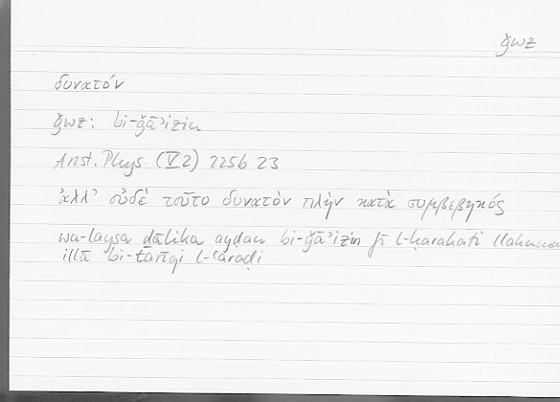 ǧwz
δυνατόν
ǧwz: bi-ǧāʾizin
Arist. Phys. (V 2) 225b 23
ἀλλ' οὐδὲ τοῦτο δυνατὸν πλὴν κατὰ συμβεβηκός
wa-laysa ḏālika ayḍan bi-ǧāʾizin fī l-ḥarakati
illā bi-ṭarīqi l-ʿaraḍi